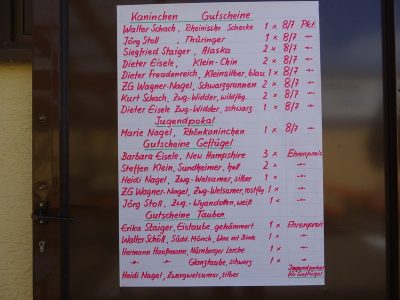 Kaninchen Gutscheine
Walter Schach, Rheinische Schecke 1 x 8/7 Pkt.
Jörg Stoll, Thüringer 1 x 8/7 -"-
Siegfried Staiger, Alaska 2 x 8/7 -"-
Dieter Eisele, Klein-Chin 2 x 8/7 -"-
Dieter Freudenreich, Kleinsilber, blau 1 x 8/7 -"-
ZG Wagner-Nagel, Schwarzgrannen 2 x 8/7 -"-
Kurt Schach, Zwg-Widder, wildfbg 2 x 8/7 -"-
Dieter Eisele Zwg-Widder, schwarz 1 x 8/7 -"-
Jugendpokal
Marie Nagel, Rhönkaninchen 1 x 8/7 -"-
Gutscheine Geflügel
Barbara Eisele, New Hampshire 3 x Ehrenpreis
Steffen Klein, Sundheimer, hell 2 x -"-
Heidi Nagel, Zwg-Welsumer, silber 1 x -"-
ZG Wagner-Nagel, Zwg-Welsumer, rostfbg 1 x -"-
Jörg Stoll, Zwg-Wyandotten, weiß 1 x -"-
Gutscheine Tauben
Erika Staiger, Eistaube, gehämmert 1 x Ehrenpreis
Walter Schöll, Südd. Mönch, blau mit Binde 1 x -"-
Hermann Hauffmann, Nürnberger Lerche 1 x -"-
-"- -"- Glanztaube, schwarz 1 x -"-
Heidi Nagel, Zwergwelsumer, silber Jugendpokal für Geflügel